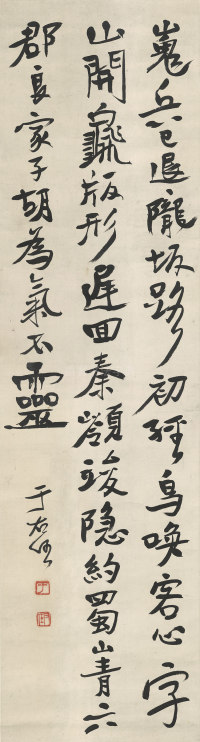 嵬兵已退隴坂路初經鳥喚客心字
山開龜版形遲回秦嶺竣隱約蜀山青六
郡良家子胡為氣不靈
于右任